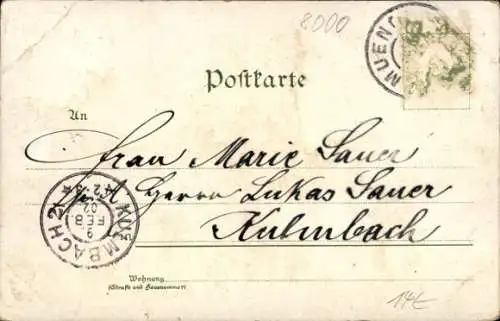 8000
MUEN
Postkarte
An
Frau Marie Sauer
Herrn Lukas Sauer
Kulmbach
KULMBACH 2
9
FEB.
02
Wohnung
(Straße und Hausnummer)
14€